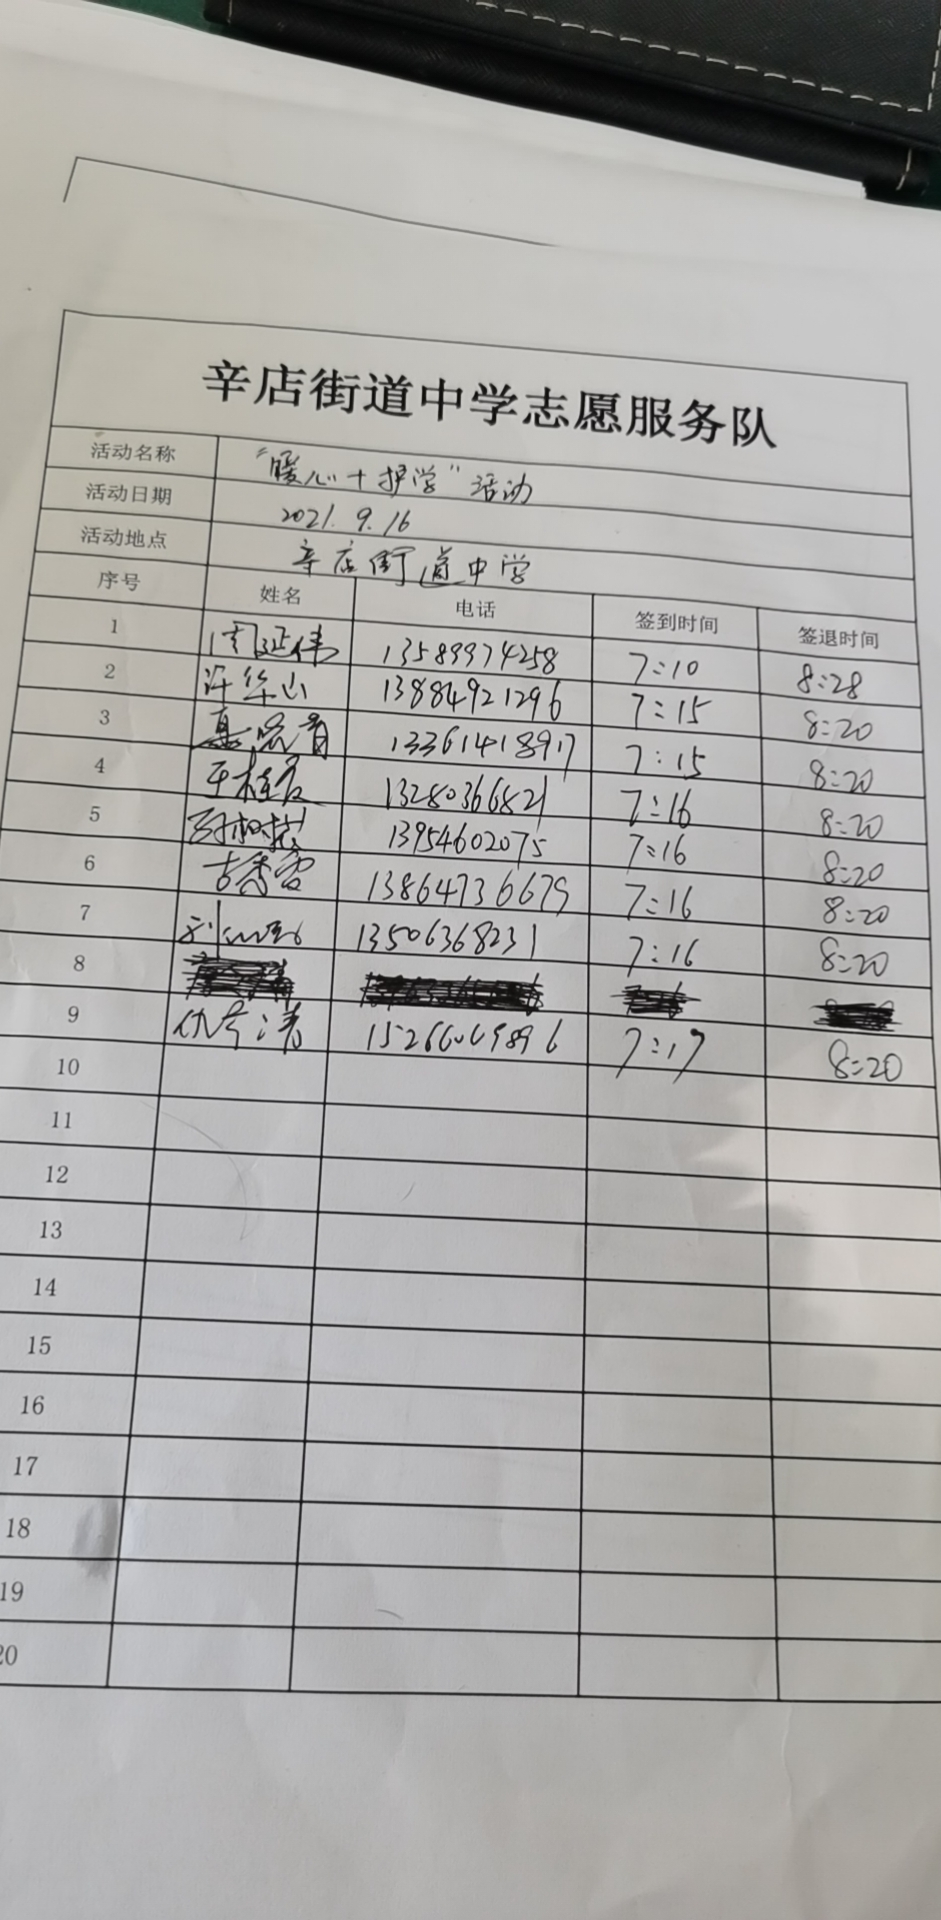 辛店街道中学志愿服务队
活动名称 "暖心+护学"活动
活动日期 2021.9.16
活动地点 辛店街道中学
序号 姓名 电话 签到时间 签退时间
1 周延伟 13589974258 7:10 8:28
2 许华山 13884921296 7:15 8:20
3 13361418917 7:15 8:20
4 13280366821 7:16 8:20
5 13954602075 7:16 8:20
6 13864736679 7:16 8:20
7 13506368231 7:16 8:20
8
9 7:17 8:20
10
11
12
13
14
15
16
17
18
19
20